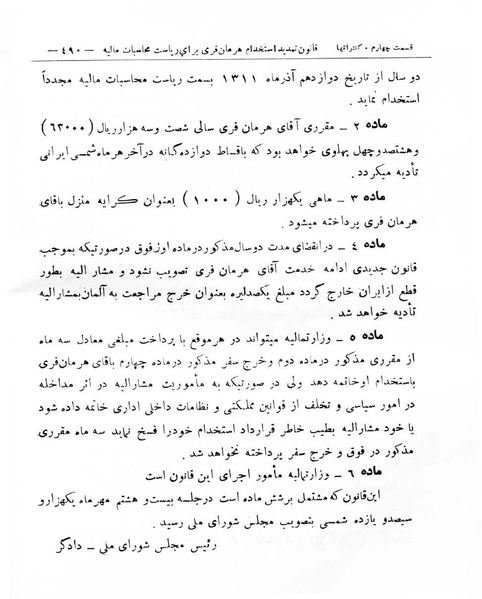 قسمت چهارم - کنتراتها    قانون تمدید استخدام هرمان فری برای ریاست محاسبات مالیه    — ٤٩٠ —
دو سال از تاریخ دوازدهم آذرماه ١٣١١ بسمت ریاست محاسبات مالیه مجدداً
استخدام نماید .
ماده ٢ — مقرری آقای هرمان فری سالی شصت وسه هزار ریال (٦٣٠٠٠)
وهشتصدوچهل پهلوی خواهد بود که باقساط دوازده گانه درآخر هرماه شمسی ایرانی
تأدیه میگردد .
ماده ٣ — ماهی یکهزار ریال (١٠٠٠) بعنوان کرایه منزل باقای
هرمان فری پرداخته میشود .
ماده ٤ — درانقضای مدت دوسال مذکور درماده اول فوق درصورتیکه بموجب
قانون جدیدی ادامه خدمت آقای هرمان فری تصویب نشود و مشار الیه بطور
قطع از ایران خارج گردد مبلغ یکصدلیره بعنوان خرج مراجعت به آلمان بمشارالیه
تأدیه خواهد شد .
ماده ٥ — وزارتمالیه میتواند در هرموقع با پرداخت مبلغی معادل سه ماه
از مقرری مذکور درماده دوم وخرج سفر مذکور درماده چهارم باقای هرمان فری
باستخدام اوخاتمه دهد ولی در صورتیکه به مأموریت مشارالیه در اثر مداخله
در امور سیاسی و تخلف از قوانین مملکتی و نظامات داخلی اداری خاتمه داده شود
یا خود مشارالیه بطیب خاطر قرارداد استخدام خودرا فسخ نماید سه ماه مقرری
مذکور در فوق و خرج سفر پرداخته نخواهد شد.
ماده ٦ — وزارتمالیه مأمور اجرای این قانون است
این قانون که مشتمل برشش ماده است درجلسه بیست و هشتم مهرماه یکهزار و
سیصدو یازده شمسی بتصویب مجلس شورای ملی رسید .
رئیس مجلس شورای ملی — دادگر